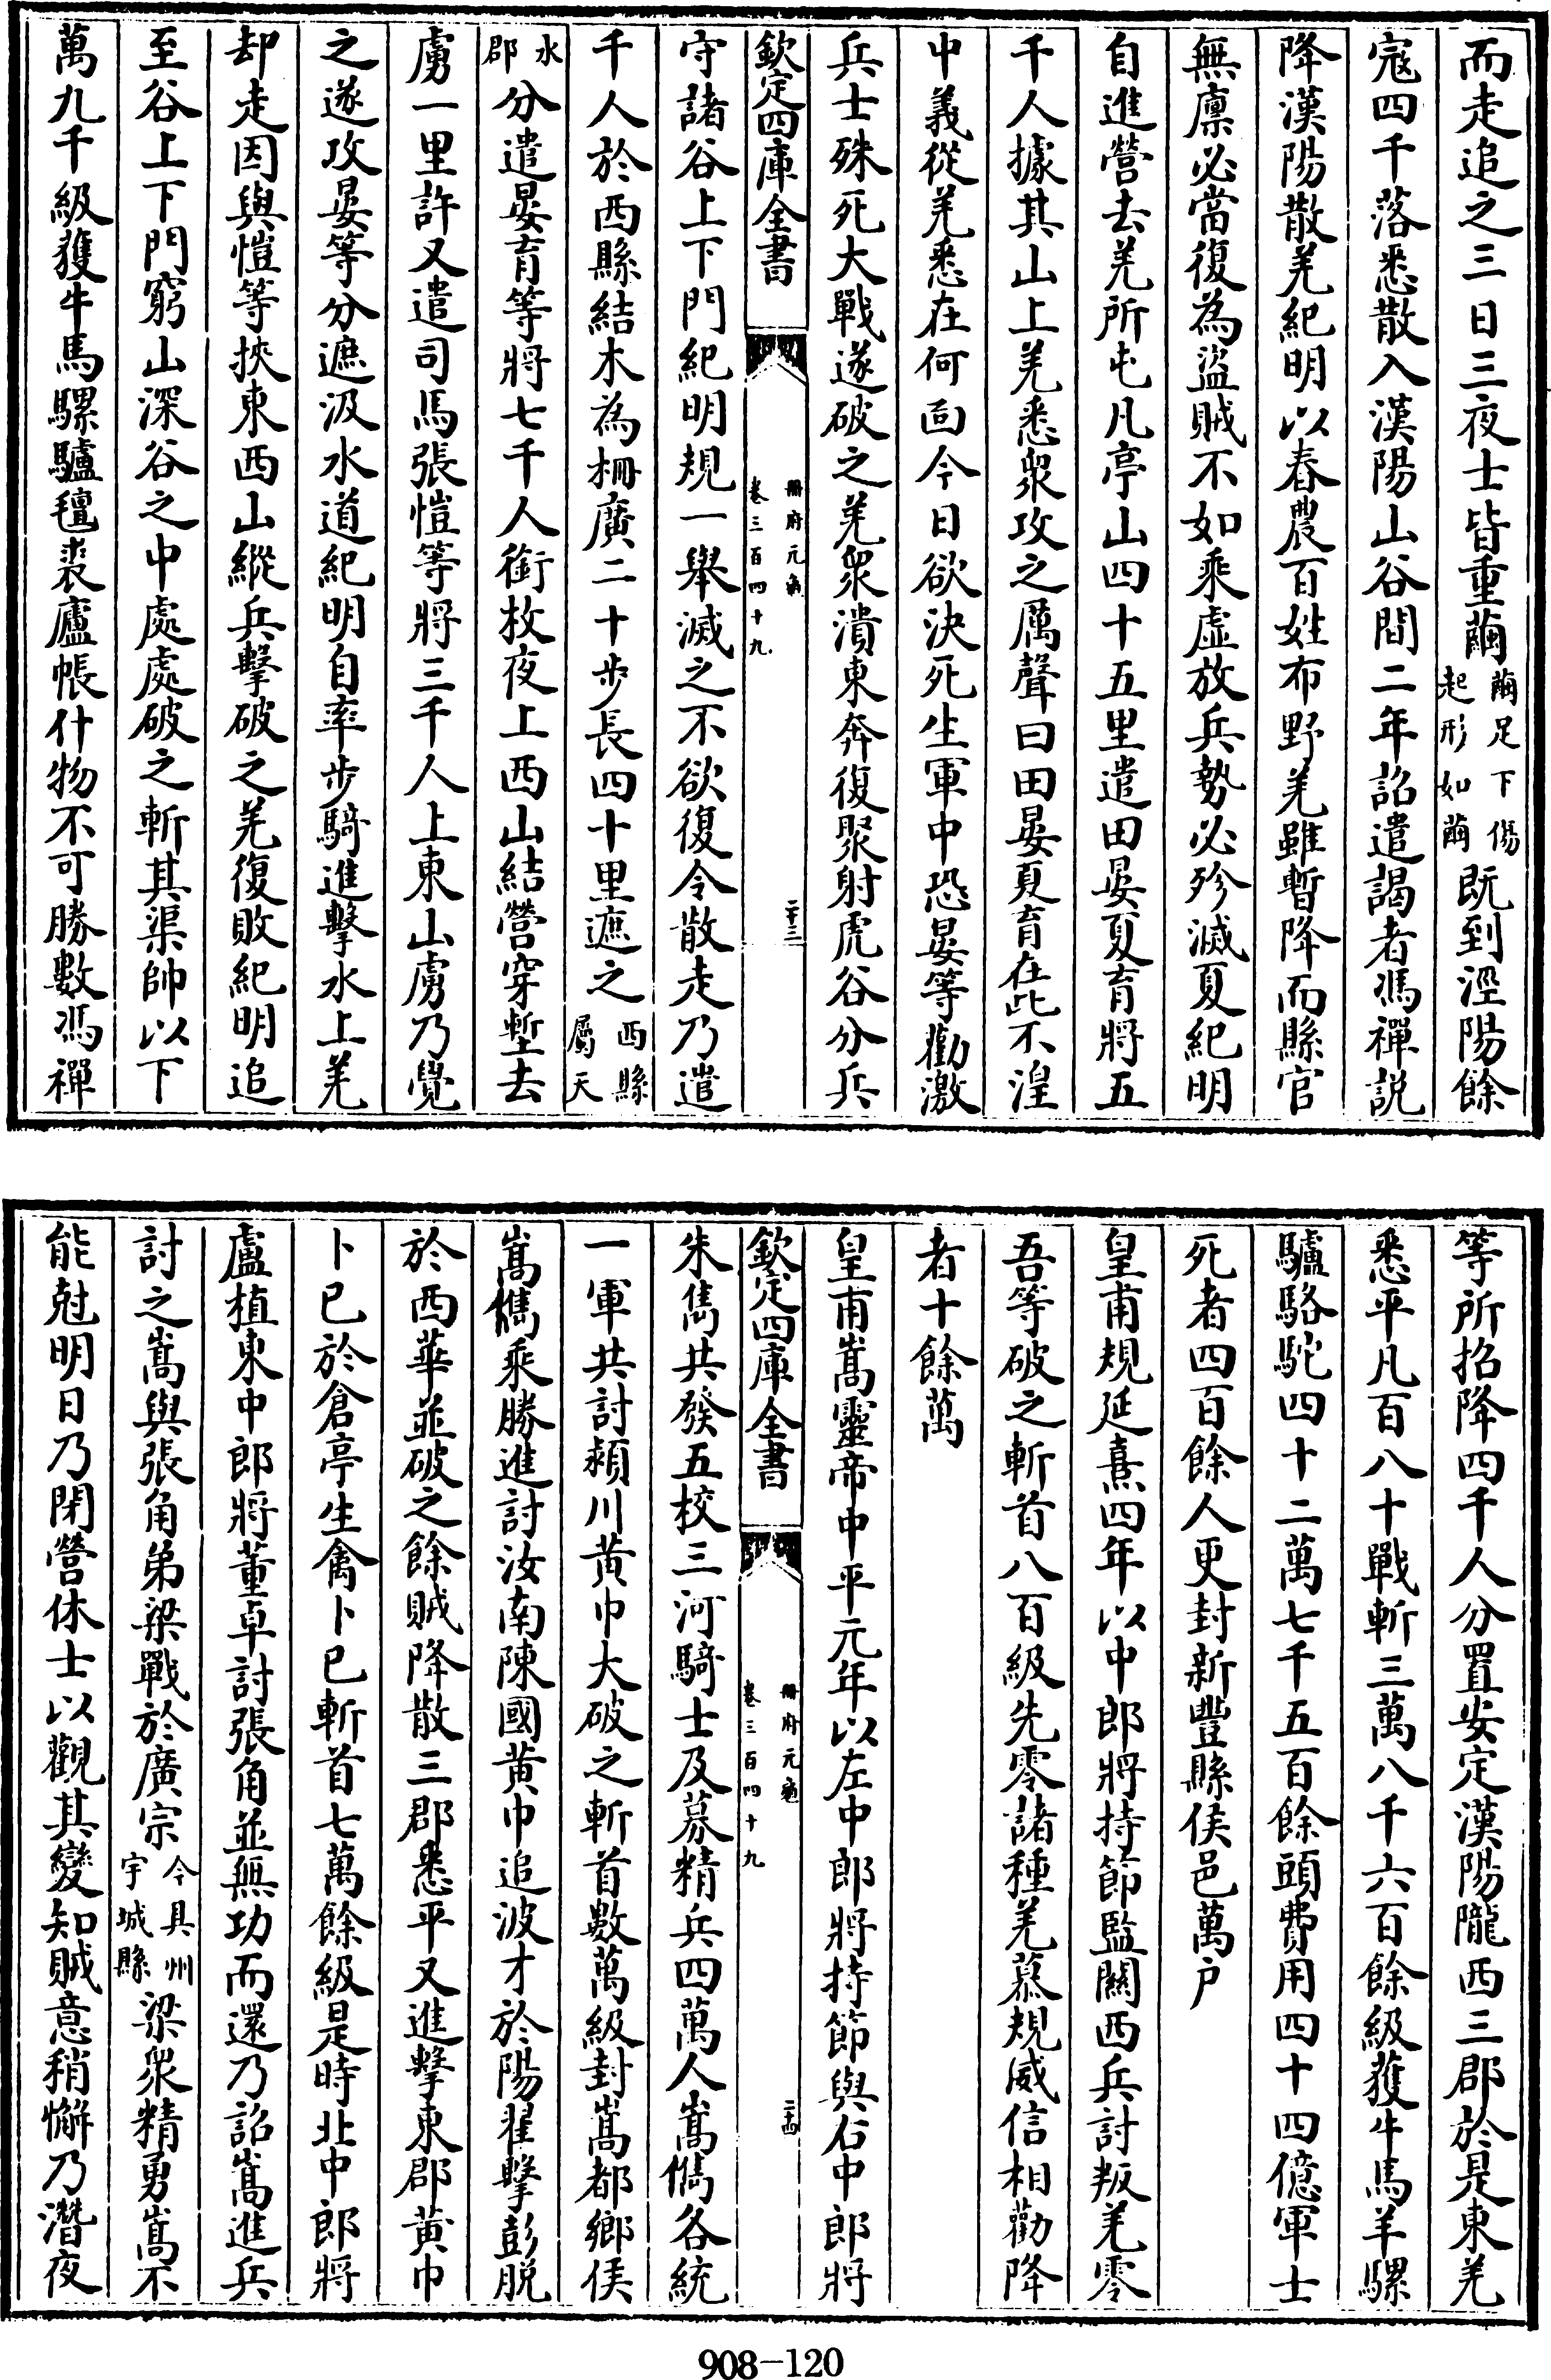 而走追之三日三夜士皆重繭繭足下傷起形如繭既到涇陽餘
寇四千落悉散入漢陽山谷間二年詔遣謁者馮禪説
降漢陽散羌紀明以春農百姓布野羌雖暫降而縣官
無廩必當復為盜賊不如乘虛放兵勢必殄滅夏紀明
自進營去羌所屯凡亭山四十五里遣田晏夏育將五
千人據其山上羌悉衆攻之厲聲曰田晏夏育在此不湟
中義從羌悉在何靣今日欲決死生軍中恐晏等勸激
兵士殊死大戰遂破之羌衆潰東奔復聚射虎谷分兵
欽定四庫全書
冊府元龜
卷三百四十九
二十三
守諸谷上下門紀明規一舉滅之不欲復令散走乃遣
千人於西縣結木為柵廣二十步長四十里遮之西縣屬天
水郡分遣晏育等將七千人銜枚夜上西山結營穿塹去
虜一里許又遣司馬張愷等將三千人上東山虜乃覺
之遂攻晏等分遮汲水道紀明自率步騎進擊水上羌
却走因與愷等挾東西山縱兵擊破之羌復敗紀明追
至谷上下門窮山深谷之中處處破之斬其渠帥以下
萬九千級獲牛馬騾驢氊裘廬帳什物不可勝數馮禪
等所招降四千人分置安定漢陽隴西三郡於是東羌
悉平凡百八十戰斬三萬八千六百餘級獲牛馬羊騾
驢駱駝四十二萬七千五百餘頭費用四十四億軍士
死者四百餘人更封新豐縣侯邑萬户
皇甫規延熹四年以中郎將持節監關西兵討叛羌零
吾等破之斬首八百級先零諸種羌慕規威信相勸降
者十餘萬
皇甫嵩靈帝中平元年以左中郎將持節與右中郎將
欽定四庫全書
冊府元龜
卷三百四十九
二十四
朱雋共發五校三河騎士及募精兵四萬人嵩儁各統
一軍共討潁川黄巾大破之斬首數萬級封嵩都鄉侯
嵩儁乘勝進討汝南陳國黄巾追波才於陽翟擊彭脱
於西華並破之餘賊降散三郡悉平又進擊東郡黄巾
卜已於倉亭生禽卜已斬首七萬餘級是時北中郎將
盧植東中郎將董卓討張角並無功而還乃詔嵩進兵
討之嵩與張角弟梁戰於廣宗今具州宇城縣梁衆精勇嵩不
能尅明日乃閉營休士以觀其變知賊意稍懈乃潛夜
908—120